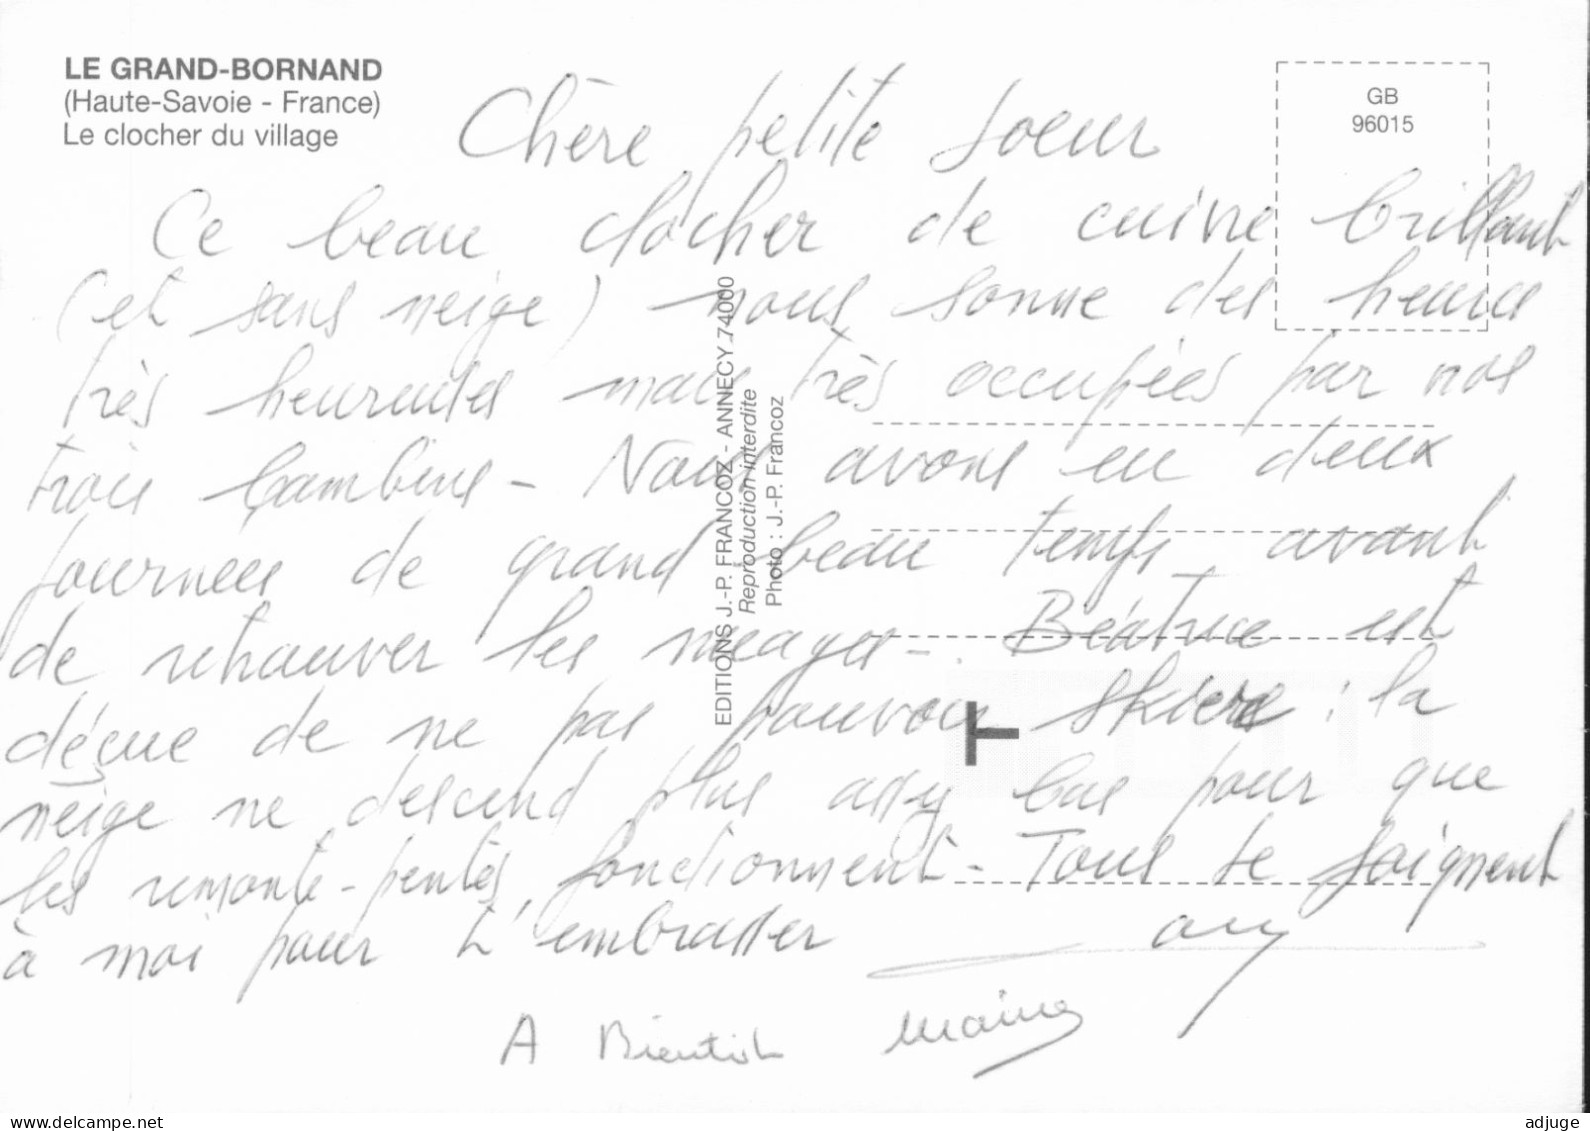 LE GRAND-BORNAND
(Haute-Savoie - France)
Le clocher du village
GB
96015
Chère petite soeur
Ce beau clocher de cuivre brillant
(et sans neige) nous sonne des heures
très heureuses mais très occupées par nos
trois bambins - Nous avons eu deux
journées de grand beau temps avant
de retrouver les nuages -. Béatrice est
déçue de ne pas pouvoir skier : la
neige ne descend plus assez bas pour que
les remonte-pentes fonctionnent - Tous se joignent
à moi pour t'embrasser
A Bientôt
EDITIONS J.-P. FRANCOZ - ANNECY 74000
Reproduction interdite
Photo : J.-P. Francoz
www.delcampe.net
adjuge